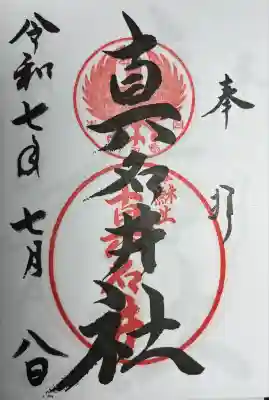 奉拝
真名井社
令和七年七月八日